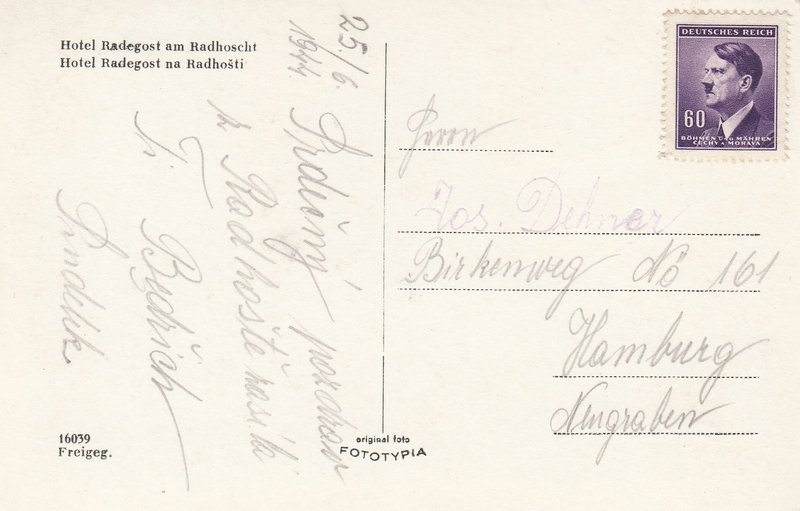 Hotel Radegost am Radhoscht
Hotel Radegost na Radhošti
25./6.
1944.
Srdečný pozdrav
z Radhoště zasílá
Bedřich
16039
Freigeg.
original foto
FOTOTYPIA
DEUTSCHES REICH
60
BÖHMEN UND MÄHREN
ČECHY A MORAVA
Herrn
Jos. Dehnar
Birkenweg No 161
Hamburg
Neugraben